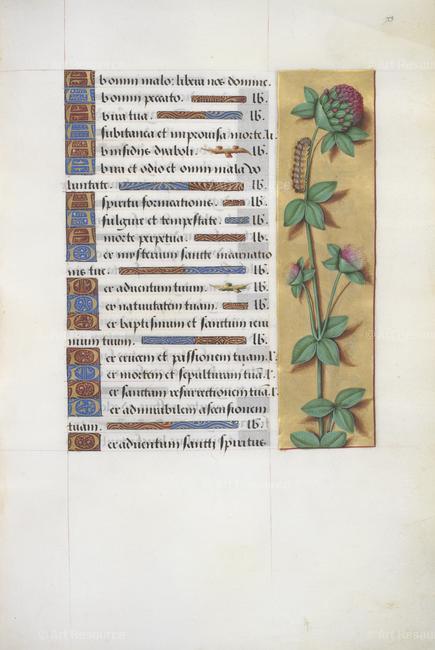 Ab omni malo: libera nos domine.
Ab omni peccato. lb.
Ab ira tua. lb.
A subitanea et improuisa morte. li.
Ab insidiis diaboli. lb.
Ab ira et odio et omni mala vo
luntate. lb.
A spiritu fornicationis. lb.
A fulgure et tempestate. lb.
A morte perpetua. lb.
Per misterium sancte incarnatio
nis tue. lb.
Per aduentum tuum. lb.
Per natiuitatem tuam. lb.
Per baptismum et sanctum ieiu
nium tuum. lb.
Per crucem et passionem tuam. l'.
Per mortem et sepulturam tuā. l'.
Per sanctam resurrectionem tuā. l'.
Per admirabilem ascensionem
tuam. lb.
Per aduentum sancti spiritus
© Art Resource
© Art Resource